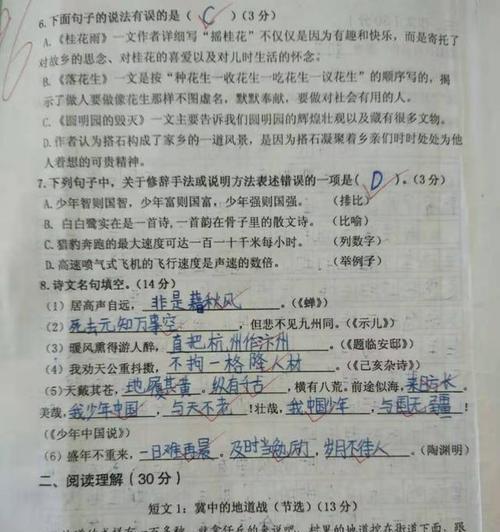 6.下面句子的说法有误的是( C )(3分)
A.《桂花雨》一文作者详细写“摇桂花”不仅仅是因为有趣和快乐，而是寄托了
对故乡的思念、对桂花的喜爱以及对儿时生活的怀念。
B.《落花生》一文是按“种花生一收花生一吃花生一议花生”的顺序写的，揭
示了做人要做像花生那样不图虚名，默默奉献，要做对社会有用的人。
C.《圆明园的毁灭》一文主要告诉我们圆明园的辉煌壮观以及藏有很多文物。
D.作者认为搭石构成了家乡的一道风景，是因为搭石凝聚着乡亲们时时处处为他
人着想的可贵精神。
7.下列句子中，关于修辞手法或说明方法表述错误的一项是( D )。(3分)
A.少年智则国智，少年富则国富，少年强则国强。 (排比)
B. 白白鹭实在是一首诗，一首韵在骨子里的散文诗。 (比喻)
C.猎豹奔跑的最大速度可达一百一十千米每小时。 (列数字)
D.高速喷气式飞机的飞行速度是声速的数倍。 (举例子)
8.诗文名句填空。(14分)
(1)居高声自远，非是藉秋风。(《蝉》)
(2)死去元知万事空，但悲不见九州同。(《示儿》)
(3)暖风熏得游人醉，直把杭州作汴州。(《题临安邸》)
(4)我劝天公重抖擞，不拘一格降人材。(《己亥杂诗》)
(5)天戴其苍，地履其黄。纵有千古，横有八荒。前途似海，来日方长。
美哉，我少年中国，与天不老！壮哉，我中国少年，与国无疆！
(《少年中国说》)
(6)盛年不重来，一日难再晨。及时当勉励，岁月不待人。(陶渊明)
二、阅读理解(30分)
短文1：冀中的地道战(节选)(13分)